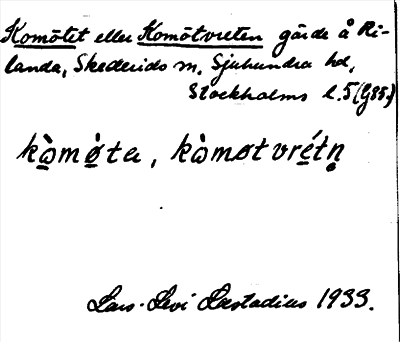 Komötet eller Komötvreten gärde å Ri-
landa, Skederids sn. Sjuhundra hd,
Stockholms l. 5 (G55.)
kòmø̀ta, kòmøtvrétṇ
Lars-Levi Læstadius 1933.